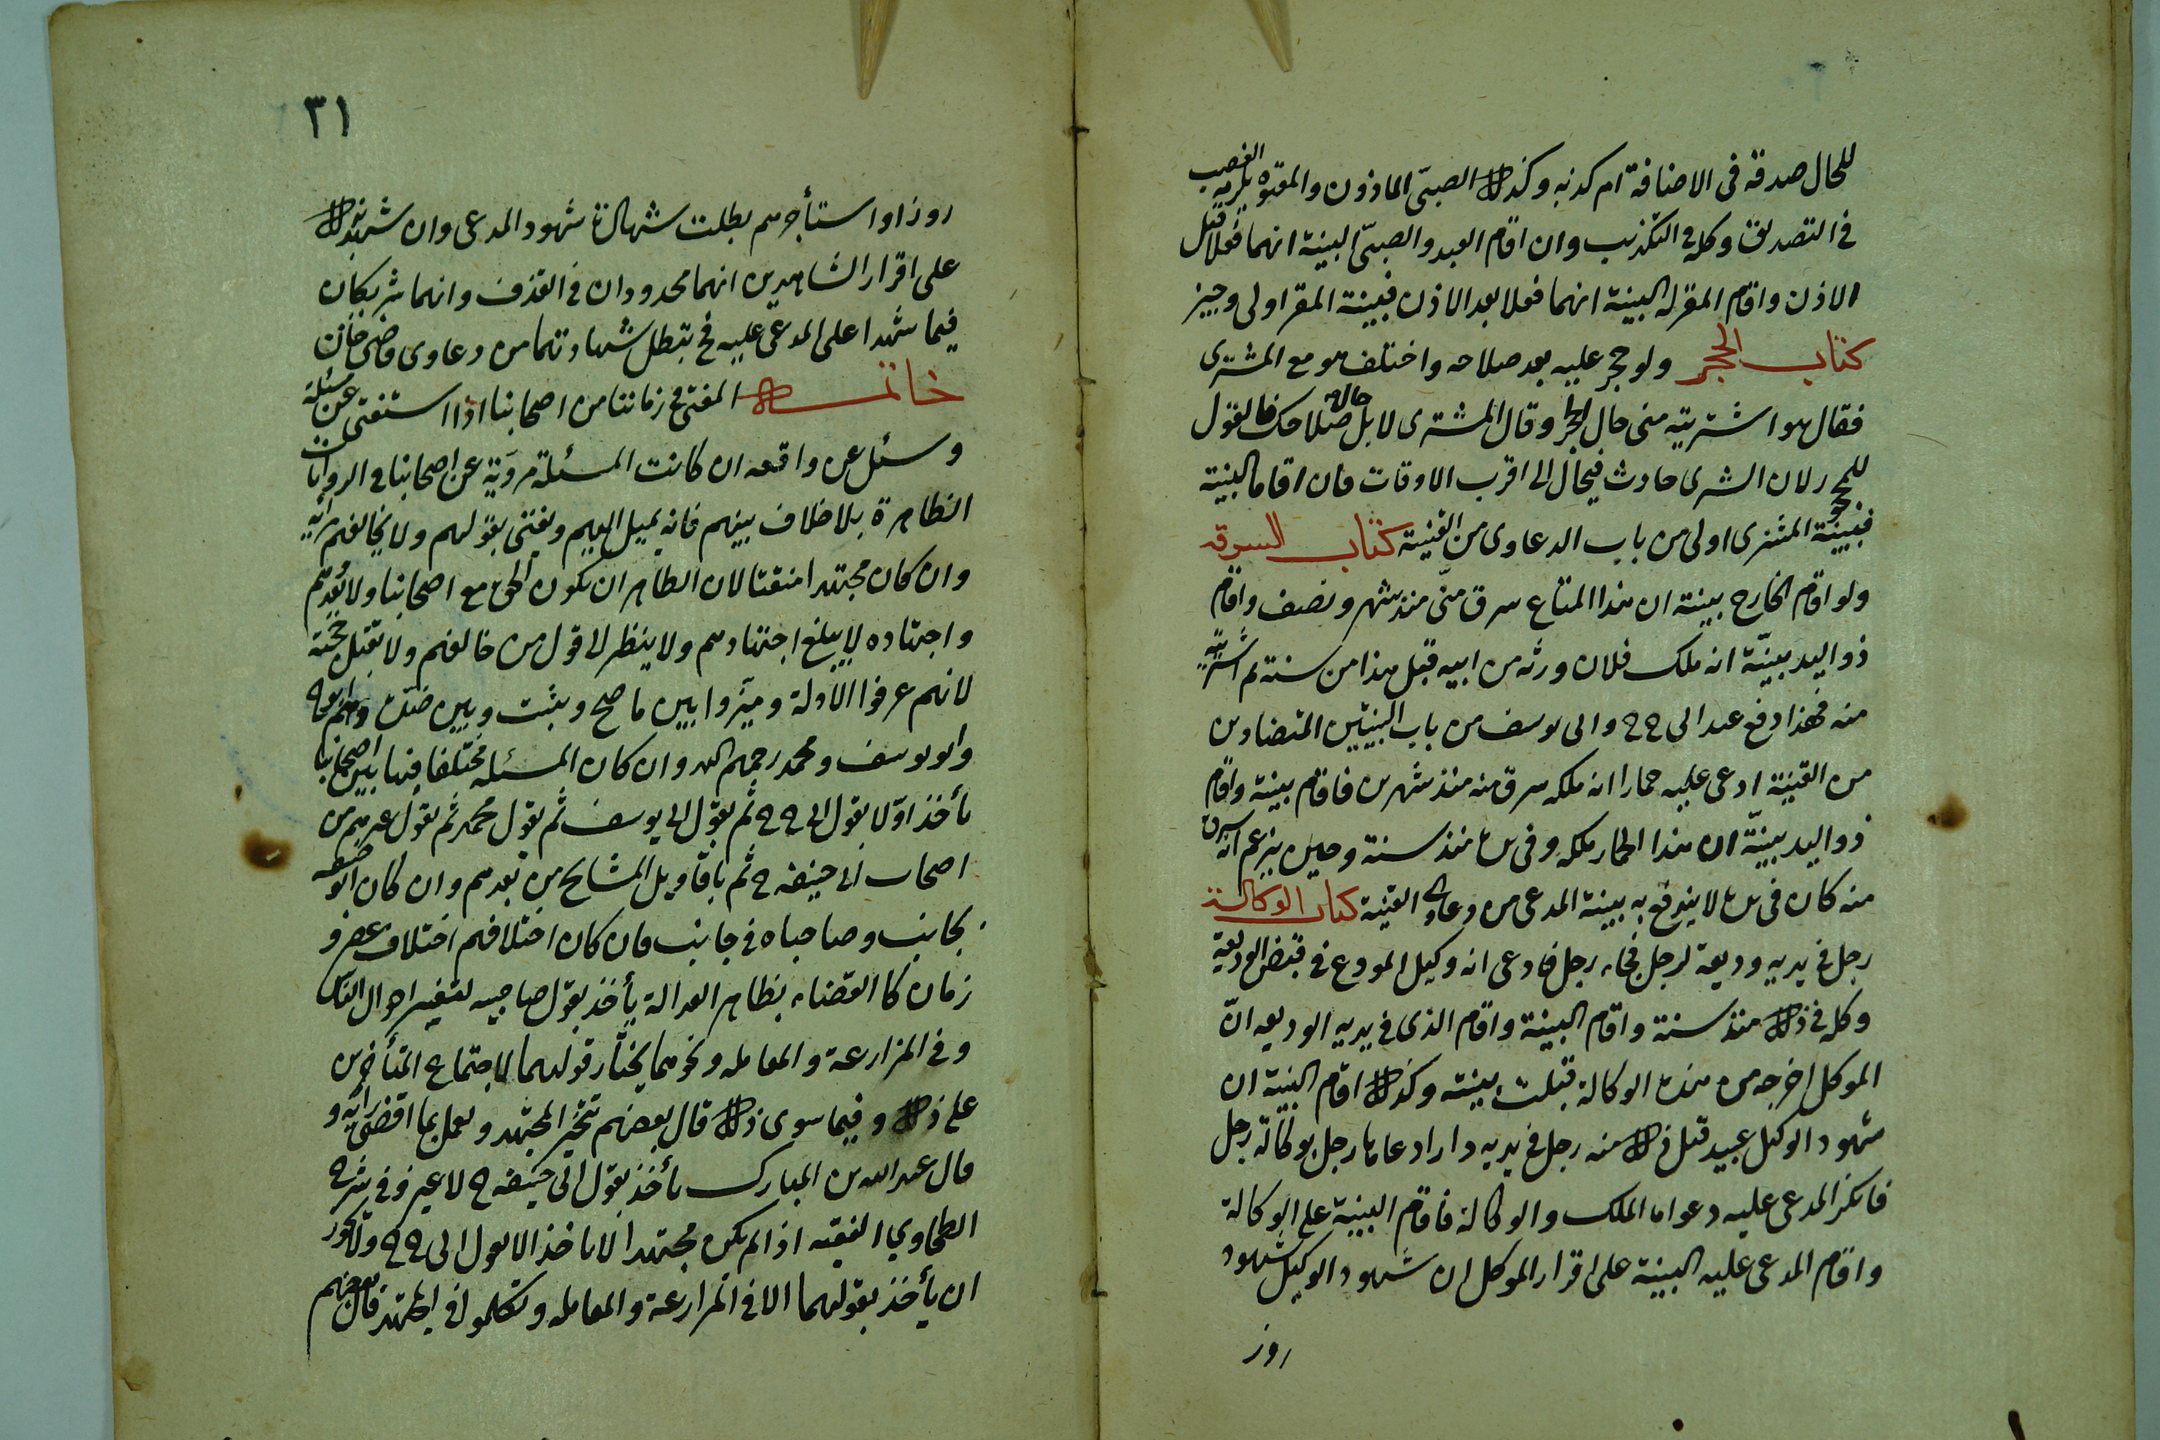 للحال صدقه فى الاضافة ام كذبه وكذلك الصبىّ الماذون والمعتوه يلزمه الغصب
فى التصديق وكله فى التكذيب وان اقام العبد والصبىّ البينة انهما فعلا قبل
الاذن واقام المقر له البينة انهما فعلا بعد الاذن فبينة المقر اولى وجيز
كتاب الحجر ولو حجر عليه بعد صلاحه واختلف هو مع المشترى
فقال هو اشتريته منى حال الحجر وقال المشترى لا بل حالة صلاحك فالقول
للمحجور لان الشرى حادث فيحال الى اقرب الاوقات فان اقاما البينة
فبينة المشترى اولى من باب الدعاوى من القنية كتاب السرقه
ولو اقام الخارج بينة ان هذا المتاع سرق منّى منذ شهر ونصف واقام
ذو اليد بينّة انه ملك فلان ورثه من ابيه قبل هذا من سنة ثم اشتريته
منه فهذا دفع عند ابى ح ح وابى يوسف من باب البينتين المتضادين
من القنية ادعى عليه حمارا انه ملكه سرق منه منذ شهرين فاقام بينة واقام
ذو اليد بينّة ان هذا الحمار ملكه وفى يده منذ سنة وحين يزعم انه سرق
منه كان فى يده لا يندفع به بينة المدعى من دعاوى القنية كتاب الوكالة
رجل فى يديه وديعة لرجل فجاء رجل فادعى انه وكيل المودع فى قبض الوديعة
وكله فى ذلك منذ سنة واقام البينة واقام الذى فى يديه الوديعه انّ
الموكل اخرجه من هذه الوكالة قبلت بينته وكذلك اقام البينة ان
شهود الوكيل عبيد قبل ذلك منه رجل فى يديه دار ادعاها رجل بوكالة رجل
فانكر المدعى عليه دعواه الملك والوكالة فاقام البينة على الوكالة
واقام المدعى عليه البينة على اقرار الموكل ان شهود الوكيل شهود
روز
٣١
روز او استأجرهم بطلت شهادة شهود المدعى وان شهد بذلك
على اقرار الشاهدين انهما محدودان فى القذف وانهما شريكان
فيما شهدا على المدعى عليه فح تبطل شهادتهما من دعاوى قاضى خان
خاتمه المفتى فى زماننا من اصحابنا اذا استفتى عن مسئلة
وسئل عن واقعه ان كانت المسئلة مرويّة عن اصحابنا فى الروايات
الظاهرة بلا خلاف بينهم فانه يميل اليهم ويفتى بقولهم ولا يخالفهم برأيه
وان كان مجتهدا متقنا لان الظاهر ان يكون الحق مع اصحابنا ولا يعدوهم
واجتهاده لا يبلغ اجتهادهم ولا ينظر الى قول من خالفهم ولا تقبل حجته
لانهم عرفوا الادلة وميّزوا بين ما صح وثبت وبين ضده وهم ابو ح
وابو يوسف ومحمد رحمهم الله وان كان المسئله مختلفا فيها بين اصحابنا
يأخذ اوّلا بقول ابى ح ح ثم بقول ابى يوسف ثم بقول محمد ثم بقول غيرهم من
اصحاب ابى حنيفه ح ثم باقاويل المشايخ من بعدهم وان كان ابو حنيفه
بجانب وصاحباه فى جانب فان كان اختلافهم اختلاف عصر و
زمان كالقضاء بظاهر العدالة يأخذ بقول صاحبيه لتغير احوال الناس
وفى المزارعة والمعامله ونحوهما يختار قولهما لاجتماع المتأخرين
على ذلك وفيما سوى ذلك قال بعضهم تخير المجتهد ويعمل بما افضى رأيه و
قال عبد الله بن المبارك يأخذ بقول ابى حنيفه ح لا غير وفى شرح
الطحاوي الفقيه اذا لم يكن مجتهدا لا ياخذ الا بقول ابى ح ح ولا يجوز
ان يأخذ بقولهما الا فى المزارعة والمعامله وتكلموا فى المجتهد قال بعضهم